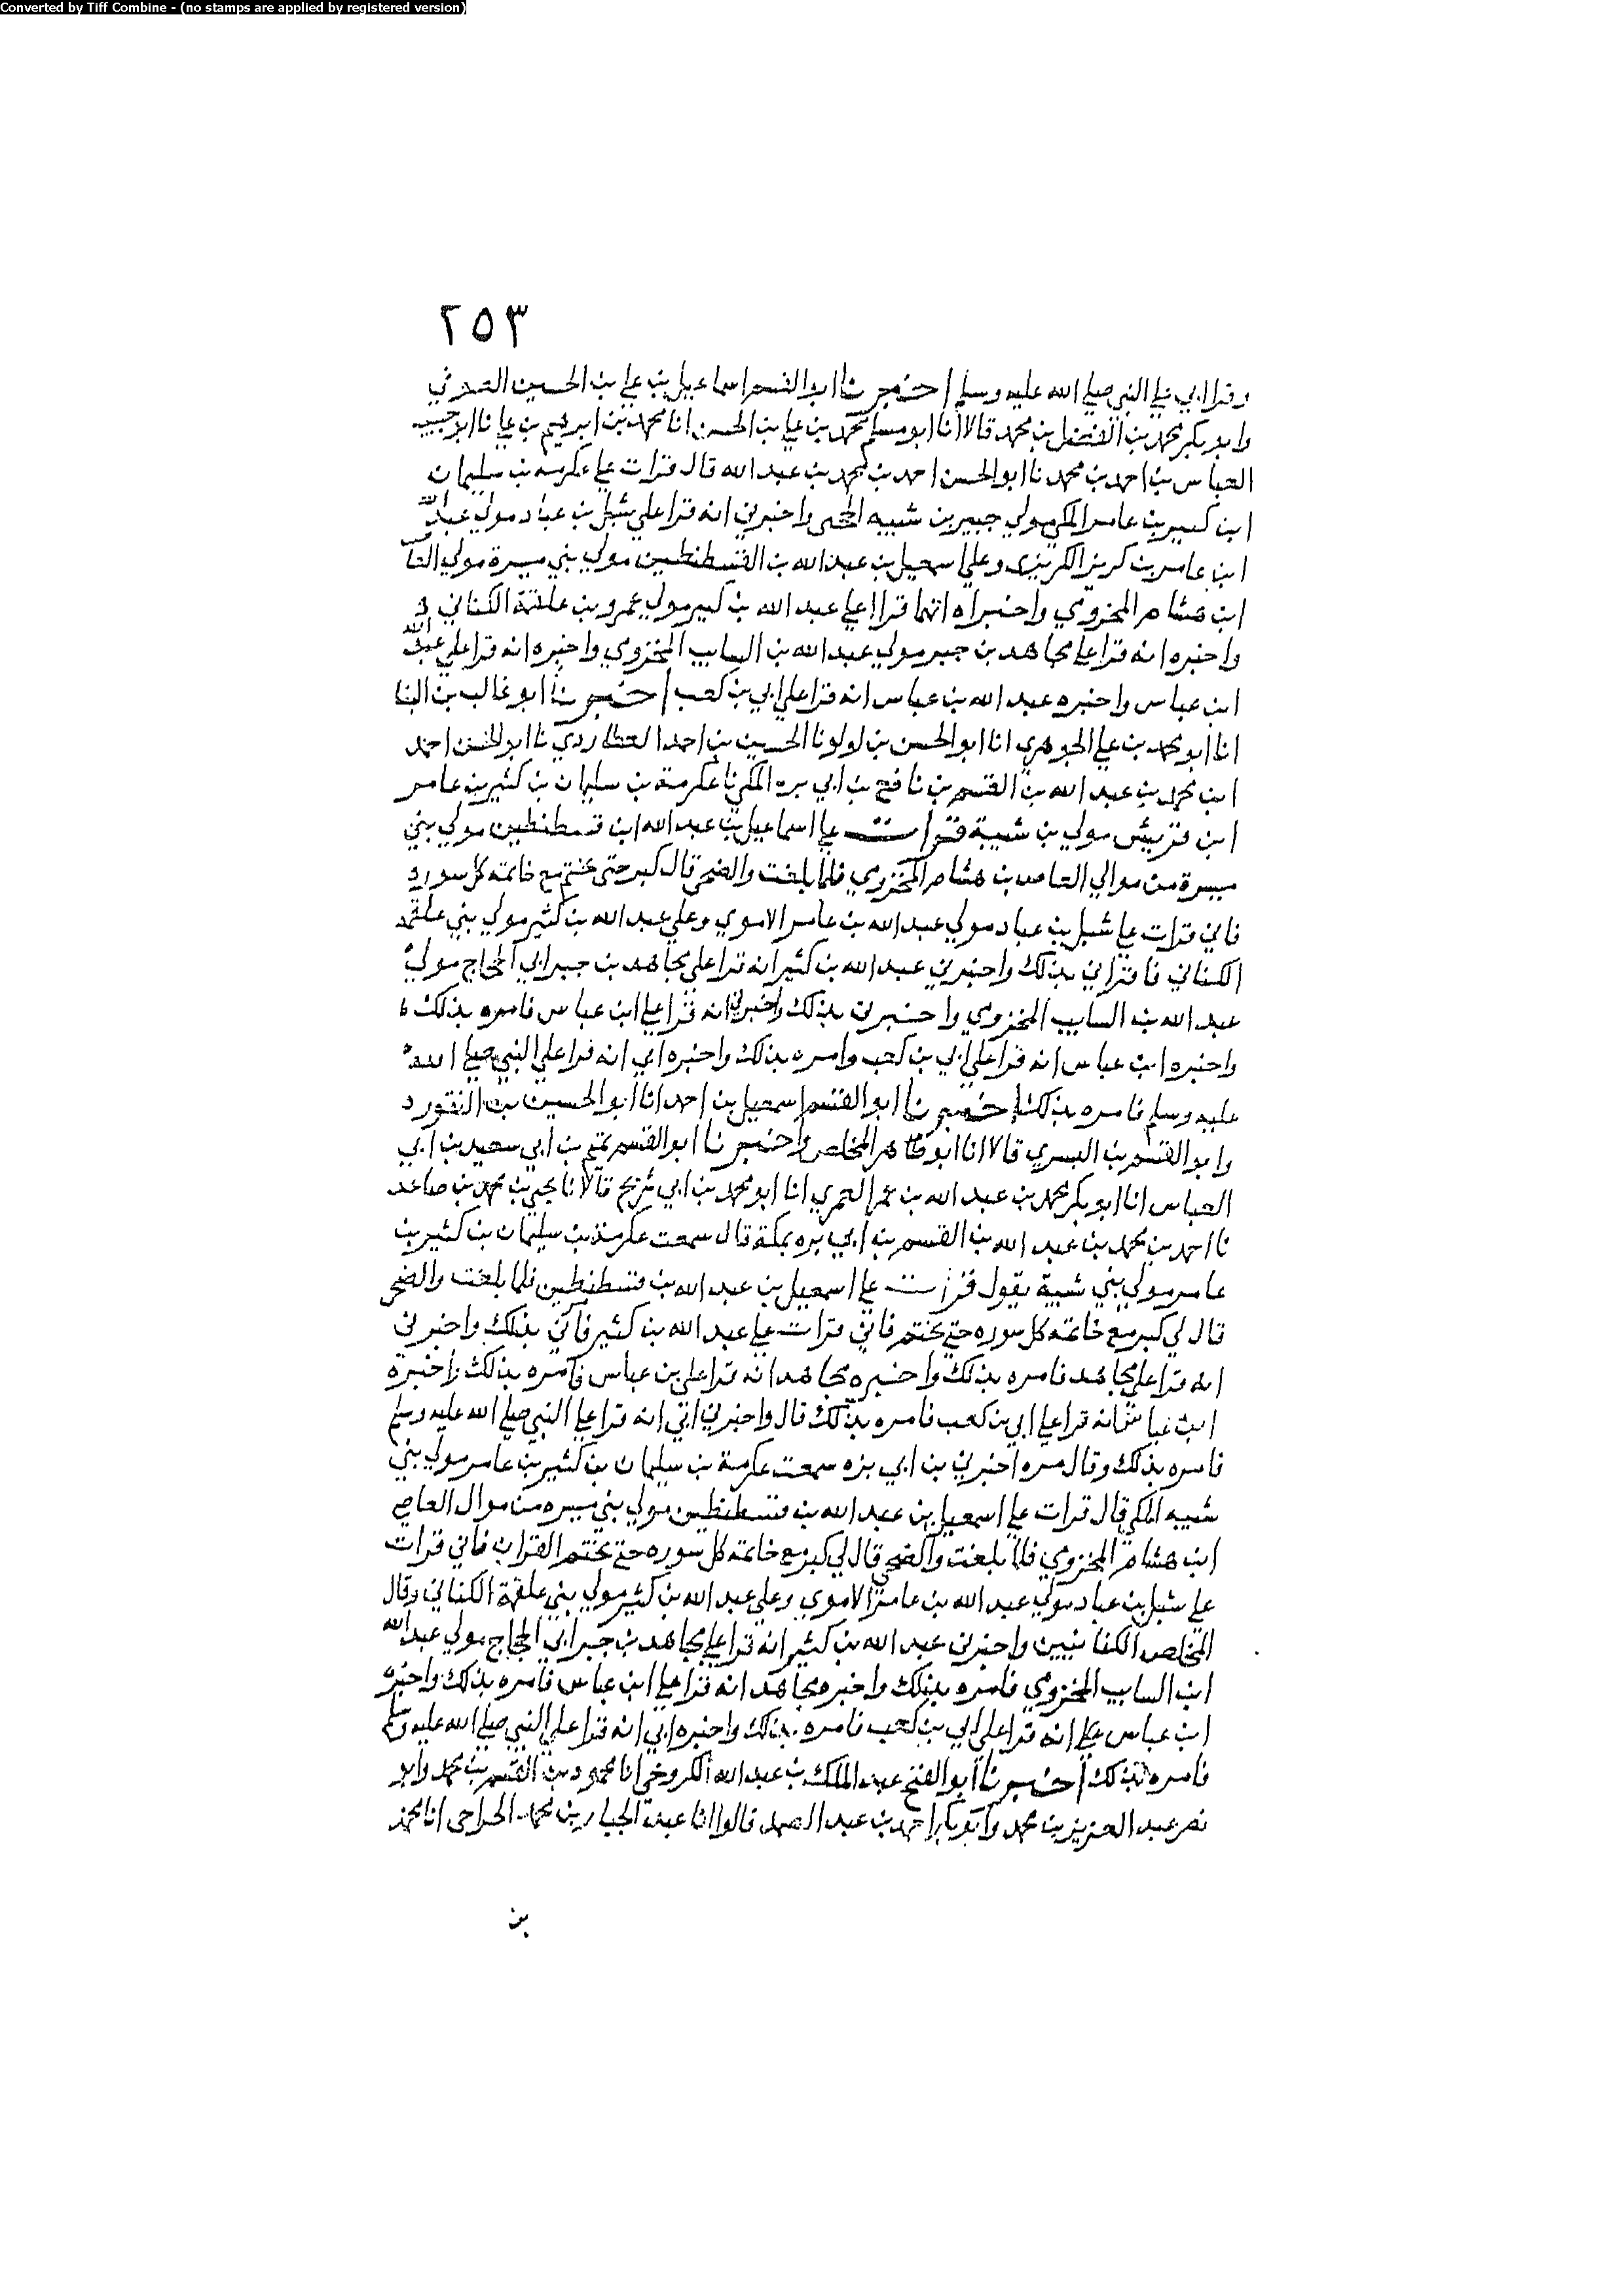 Converted by Tiff Combine - (no stamps are applied by registered version)
٢٥٣
وقرا ابي علي النبي صلي الله عليه وسلم اخبرنا ابو القسم اسماعيل بن علي بن الحسين
وابو بكر محمد بن الفضل بن محمد قالا انا ابو مسلم محمد بن علي بن الحسن انا محمد بن ابرهيم بن علي نا ابو حبيب
العباس بن احمد بن محمد نا ابو الحسن احمد بن محمد بن عبد الله قال قرات علي عكرمه بن سليمان
ابن كثير بن عامر المكي مولي جبير بن شيبه الحجبي واخبرني انه قرا علي شبل بن عباد مولي عبد الله
ابن عامر بن كريز الكريزي وعلي اسمعيل بن عبد الله بن القسطنطين مولي بني ميسرة مولي العاص
ابن هشام المخزومي واخبراه انهما قراا علي عبد الله بن كثير مولي عمرو بن علقمة الكناني
واخبره انه قرا علي مجاهد بن جبر مولي عبد الله بن السايب المخزومي واخبره انه قرا علي عبد الله
ابن عباس واخبره عبد الله بن عباس انه قرا علي ابي بن كعب اخبرنا ابو غالب بن البنا
انا ابو محمد بن علي الجوهري انا ابو الحسن بن لولو نا الحسين بن احمد العطاردي نا ابو الحسن احمد
ابن محمد بن عبد الله بن القسم بن نافع بن ابي بزه المكي نا عكرمة بن سليمان بن كثير بن عامر
ابن قريش مولي بن شيبة قرات علي اسماعيل بن عبد الله ابن قسطنطين مولي بني
ميسرة من موالي العاص بن هشام المخزومي فلما بلغت والضحى قال كبر حتى تختم مع خاتمه كل سورة
فاني قرات علي شبل بن عباد مولي عبد الله بن عامر الاموي وعلي عبد الله بن كثير مولي بني علقمه
الكناني فاقراني بذلك واخبرني عبد الله بن كثير انه قرا علي مجاهد بن جبر ابي الحجاج مولي
عبد الله بن السايب المخزومي واخبرني بذلك واخبرني انه قرا علي ابن عباس فامره بذلك
واخبره ابن عباس انه قرا علي ابي بن كعب وامره بذلك واخبره ابي انه قرا علي النبي صلي الله
عليه وسلم فامره بذلك اخبرنا ابو القسم اسمعيل بن احمد انا ابو الحسين بن النقور
وابو القسم بن البسري قالا انا ابو طاهر المخلص واخبرنا ابو القسم تميم بن ابي سعيد بن ابي
العباس انا ابو بكر محمد بن عبد الله بن عمر العمري انا ابو محمد بن ابي شريح قالا نا يحيى بن محمد بن صاعد
نا احمد بن محمد بن عبد الله بن القسم بن ابي بزه بمكة قال سمعت عكرمة بن سليمان بن كثير بن
عامر مولي بني شيبة يقول قرات علي اسمعيل بن عبد الله بن قسطنطين فلما بلغت والضحى
قال لي كبر مع خاتمه كل سوره حتي تختم فاني قرات علي عبد الله بن كثير بذلك واخبرني
انه قرا علي مجاهد فامره بذلك واخبره مجاهد انه قرا علي بن عباس فامره بذلك واخبره
ابن عباس انه قرا علي ابي بن كعب فامره بذلك قال واخبرني ابي انه قرا علي النبي صلي الله عليه وسلم
فامره بذلك وقال مره اخبرني بن ابي بزه سمعت عكرمة بن سليمان بن كثير بن عامر مولي بني
شيبه المكي قال قرات علي اسمعيل بن عبد الله بن قسطنطين مولي بني ميسره من موال العاص
ابن هشام المخزومي فلما بلغت والضحى قال لي كبر مع خاتمه كل سوره حتي تختم القران فاني قرات
علي شبل بن عباد مولي عبد الله بن عامر الاموي وعلي عبد الله بن كثير مولي بني علقمة الكناني وقال
المخلص الكنانيين واخبرني عبد الله بن كثير انه قرا علي مجاهد بن جبر ابي الحجاج مولي عبد الله
ابن السايب المخزومي فامره بذلك واخبره مجاهد انه قرا علي ابن عباس فامره بذلك واخبره
ابن عباس انه قرا علي ابي بن كعب فامره بذلك واخبره ابي انه قرا علي النبي صلي الله عليه وسلم
فامره بذلك اخبرنا ابو الفتح عبد الملك بن عبد الله الكروخي انا محمود بن القسم بن محمد وابو
نصر عبد العزيز بن محمد وابو بكر احمد بن عبد الصمد قالوا انا عبد الجبار بن محمد الجراحي انا محمد
بن